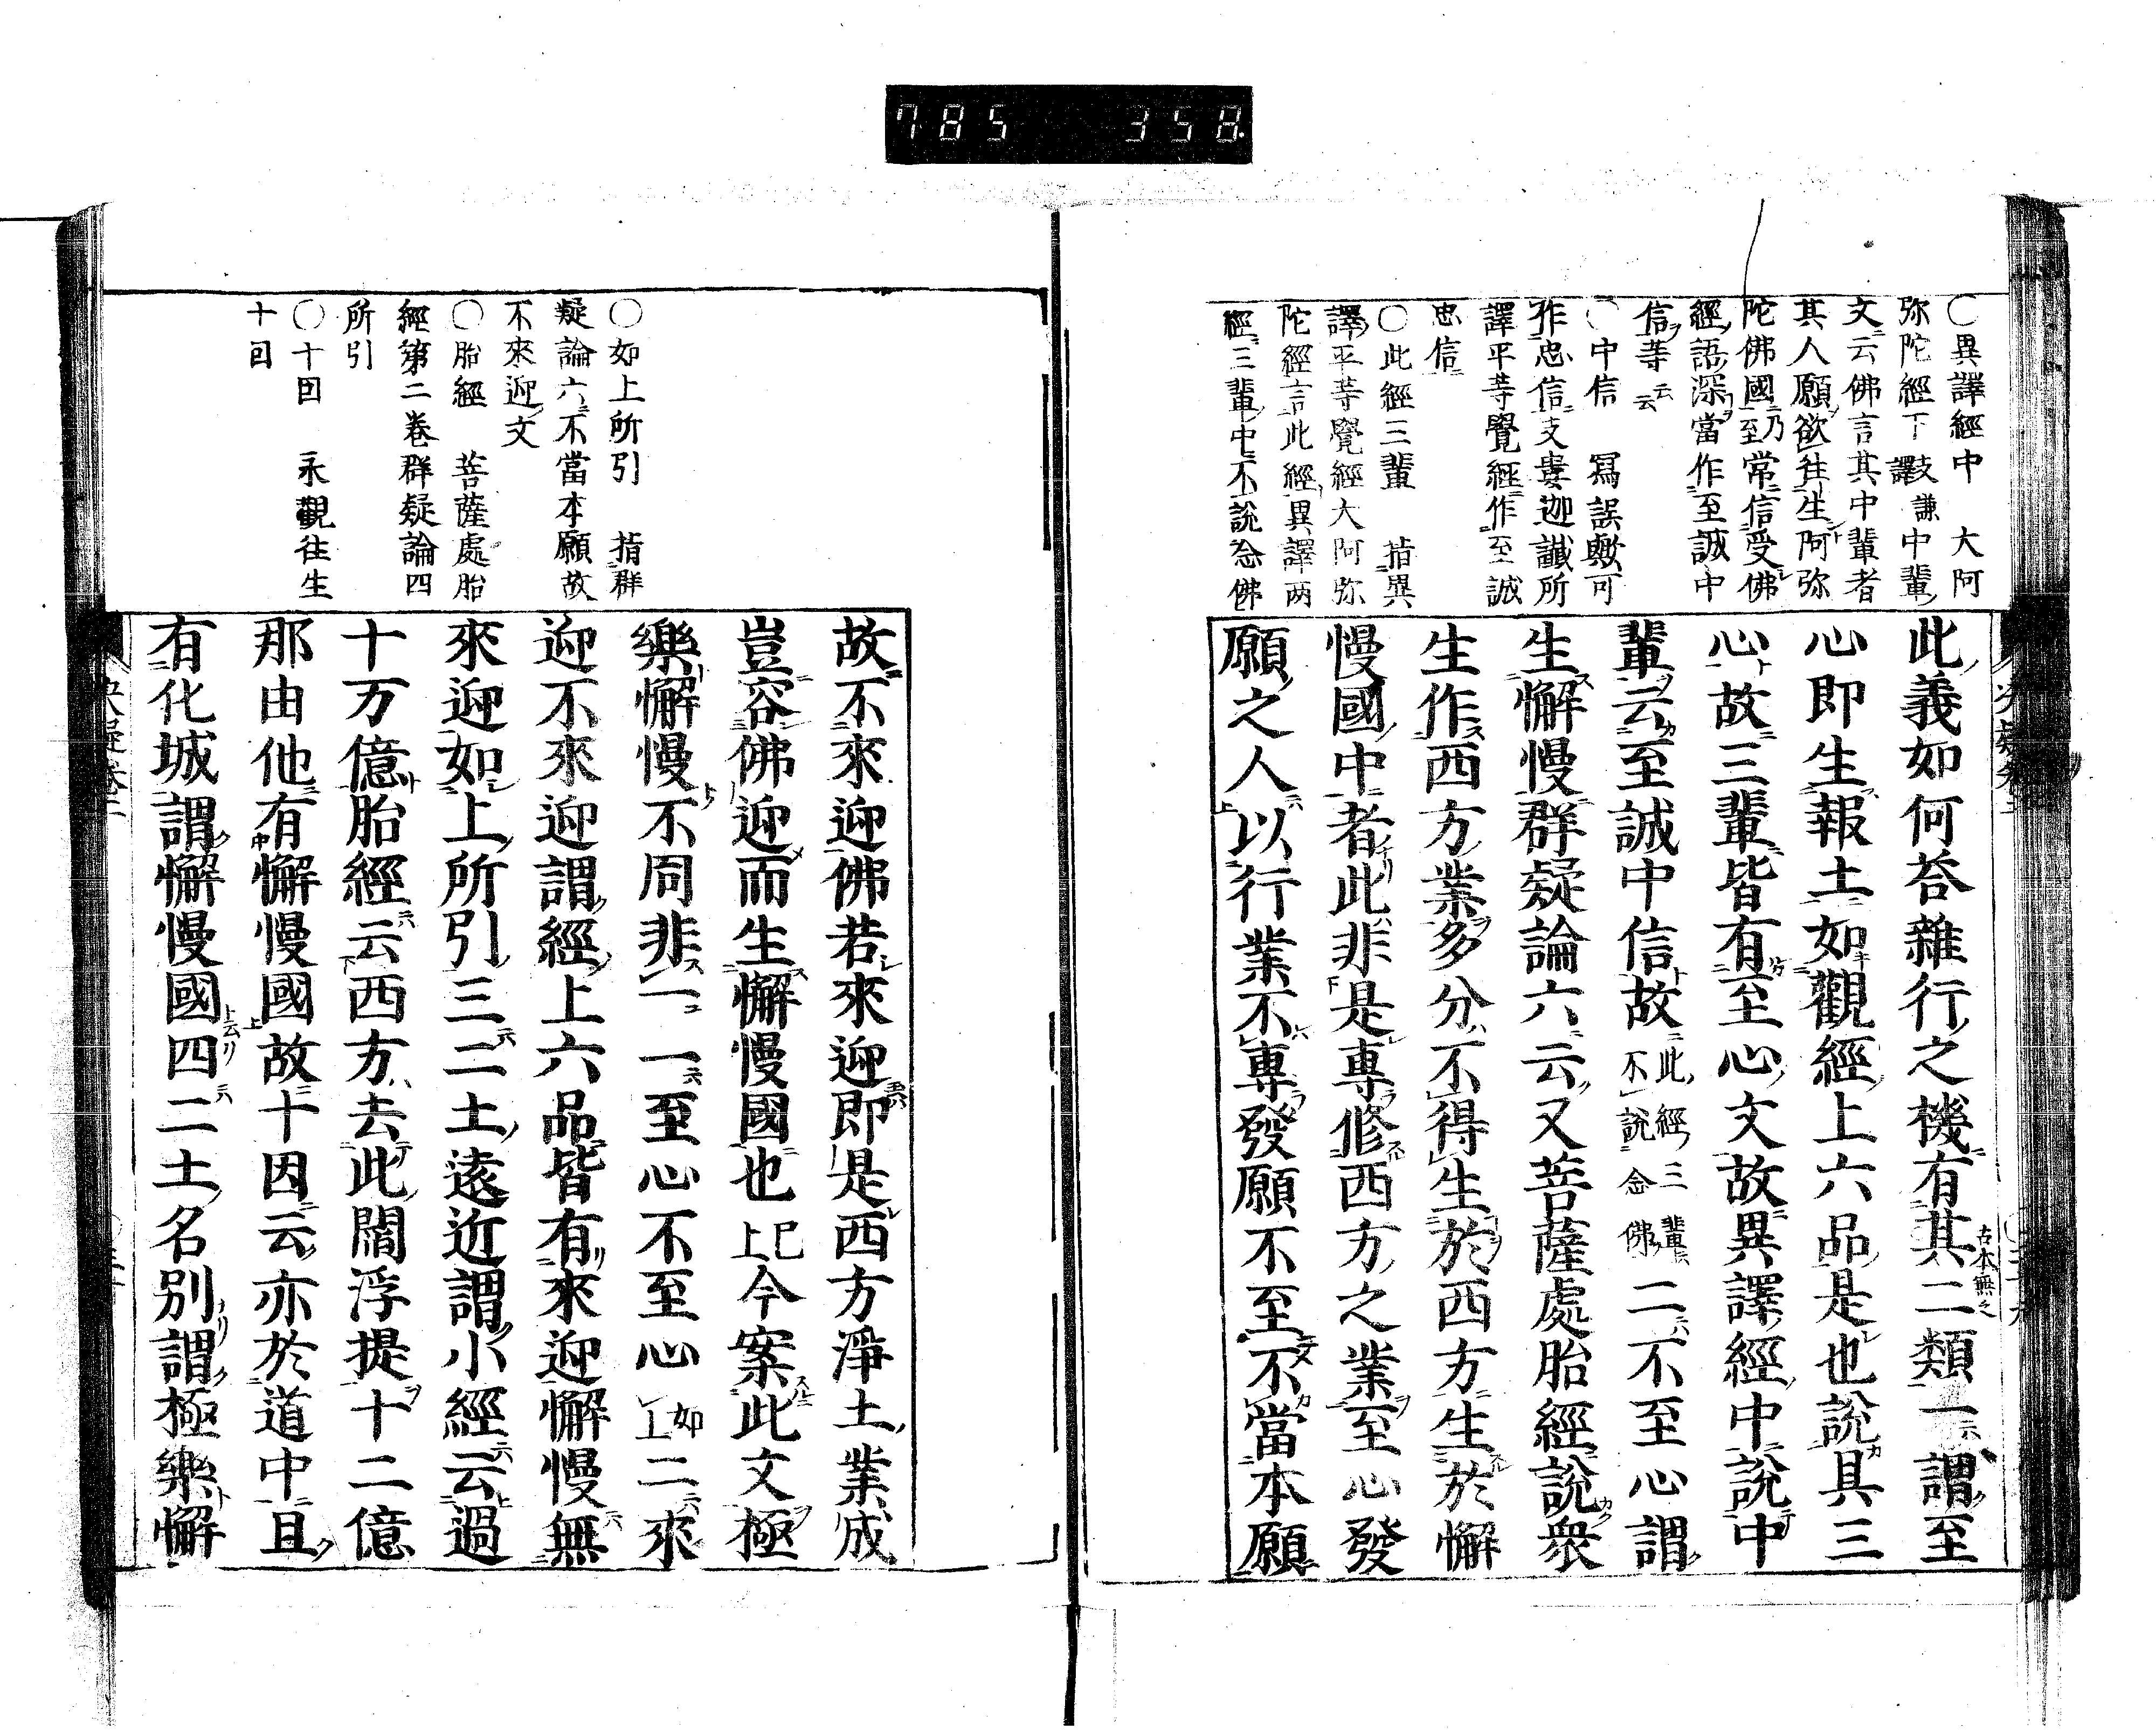 785 358
〇異譯經中 大阿
弥陀經下 支謙譯 中輩
文云佛言其中輩者
其人願欲往生阿弥
陀佛國乃至常信受佛
經語深當作至誠中
信等云云
〇中信 寫誤歟可
作忠信支婁迦讖所
譯平等覺經作至誠
忠信
〇此經三輩 指異
譯平等覺經大阿弥
陀經言此經異譯两
經三輩中不說念佛
此義如何荅雜行之機有其二類一謂至
古本無之
心即生報土如觀經上六品是也說具三
心故三輩皆有至心文故異譯經中說中
輩云至誠中信故此經三輩不說念佛二不至心謂
生懈慢群疑論六云又菩薩處胎經說衆
生作西方業多分不得生於西方生於懈
慢國中者此非是專修西方之業至心發
願之人以行業不專發願不至不當本願
〇如上所引 指群
疑論六不當本願故
不來迎文
〇胎經 菩薩處胎
經第二卷群疑論四
所引
〇十因 永觀往生
十因
故不來迎佛若來迎即是西方淨土業成
豈容佛迎而生懈慢國也已上今案此文極
樂懈慢不同非一一至心不至心如上二來
迎不來迎謂經上六品皆有來迎懈慢無
來迎如上所引三二土遠近謂小經云過
十万億胎經云西方去此閻浮提十二億
那由他有懈慢國故十因云亦於道中且
有化城謂懈慢國四二土名別謂極樂懈